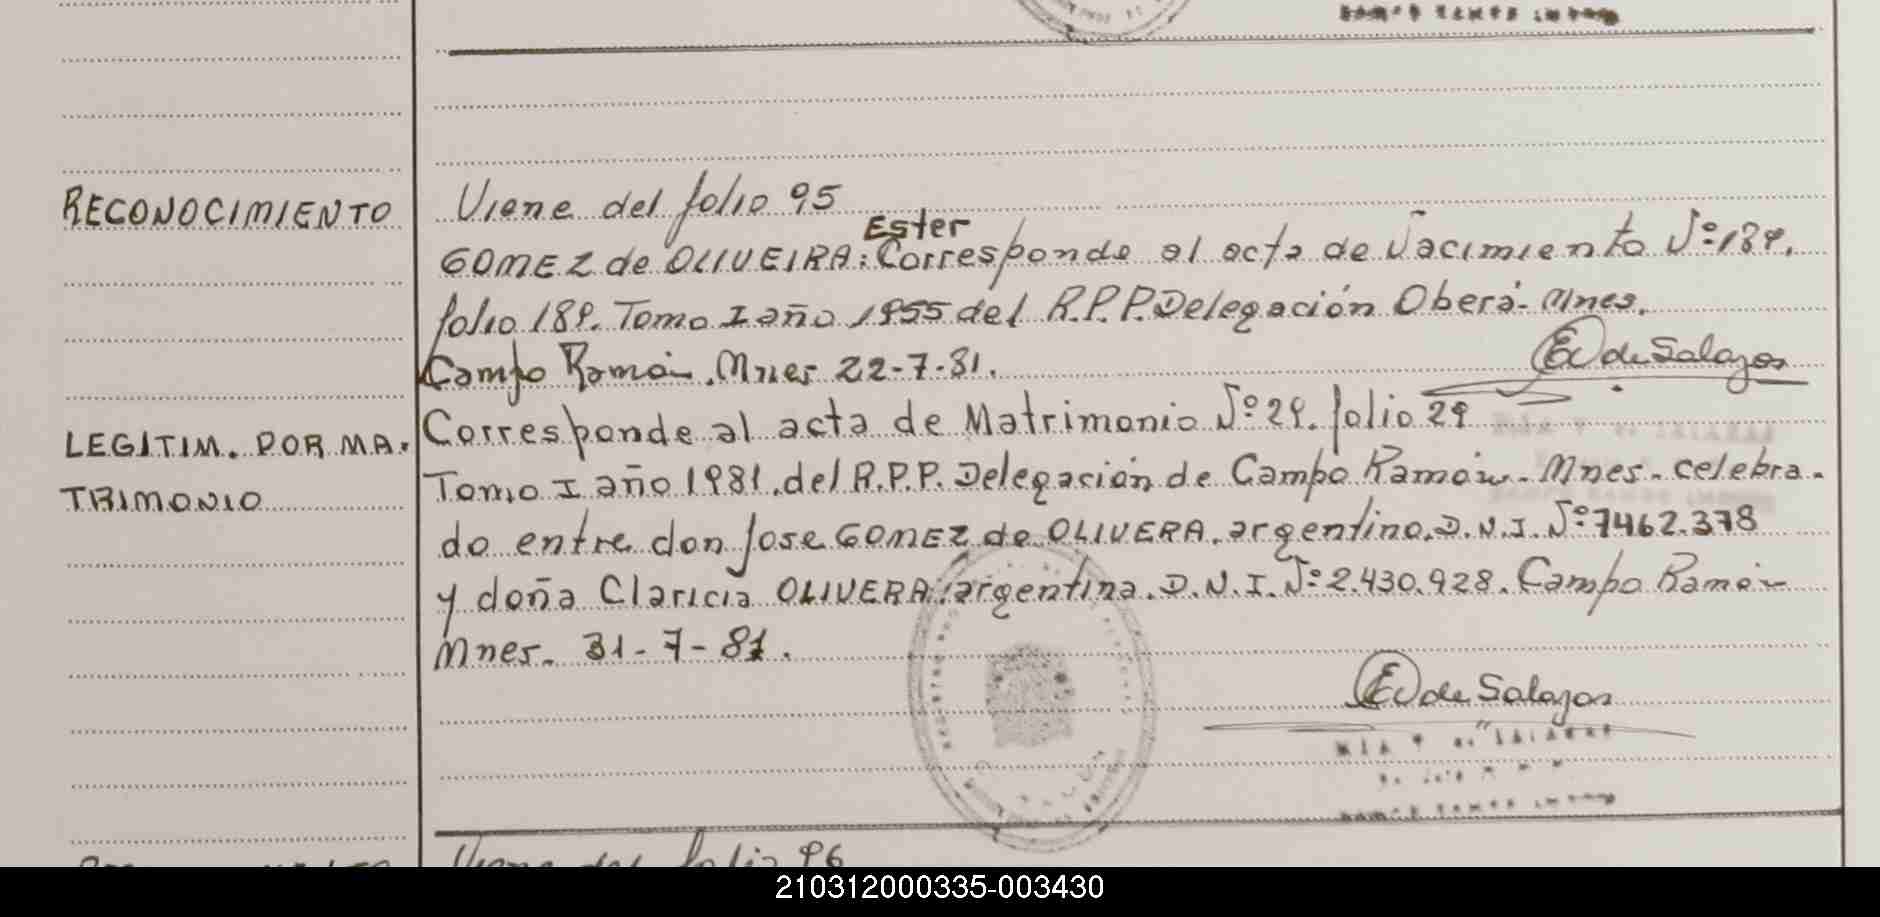 RECONOCIMIENTO
Viene del folio 95
Ester
GOMEZ de OLIVEIRA: Corresponde al acta de Nacimiento Nº 189.
folio 189. Tomo I año 1955 del R.P.P. Delegación Oberá. Mnes.
Campo Ramón. Mnes 22-7-81.
de Salazar
LEGITIM. POR MA.
TRIMONIO
Corresponde al acta de Matrimonio Nº 29. folio 29
Tomo I año 1981. del R.P.P. Delegación de Campo Ramón. Mnes. celebra.
do entre don Jose GOMEZ de OLIVERA. argentino. D.N.I. Nº 7462.378
y doña Claricia OLIVERA: argentina. D.N.I. Nº 2.430.928. Campo Ramón
Mnes. 31-7-81.
de Salazar
Viene del folio 96
210312000335-003430